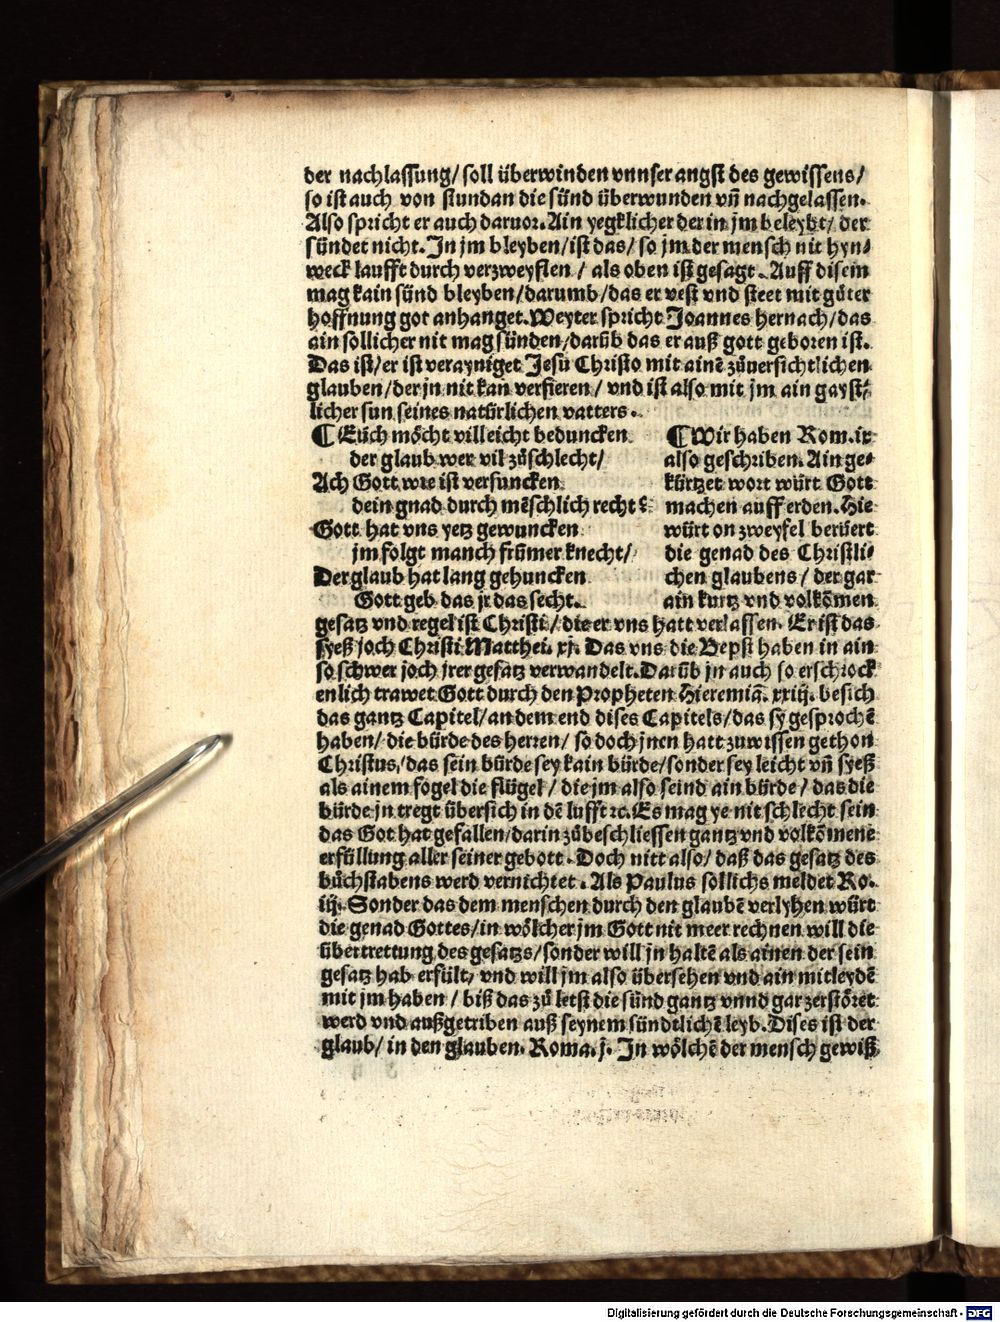 der nachlassung/ soll überwinden vnnser angst des gewissens/
so ist auch von stundan die sünd überwunden vn̄ nachgelassen.
Also spricht er auch daruor. Ain yegklicher der in jm beleybt/ der
sündet nicht. In jm bleyben/ ist das/ so jm der mensch nit hyn⸗
weck laufft durch verzweyflen / als oben ist gesagt. Auff disem
mag kain sünd bleyben/ darumb/ das er vest vnd steet mit gůter
hoffnung got anhanget. Weyter spricht Joannes hernach/ das
ain sollicher nit mag sünden/ darüb das er auß gott geboren ist.
Das ist/ er ist verayniget Jesu Christo mit ainē zůuersichtlichen
glauben/ der jn nit kan verfieren / vnd ist also mit jm ain gayst⸗
licher sun seines natürlichen vatters.
¶ Eüch möcht villeicht beduncken
der glaub wer vil zůschlecht/
Ach Gott wie ist versuncken
dein gnad durch mēschlich recht?
Gott hat vns yetz gewuncken
jm folgt manch frūmer knecht/
Der glaub hat lang gehuncken
Gott geb das jr das secht.
¶ Wir haben Rom. ix
also geschriben. Ain ge⸗
kürtzet wort würt Gott
machen auff erden. Hie
würt on zweyfel berüert
die genad des Christli⸗
chen glaubens/ der gar
ain kurtz vnd volkōmen
gesatz vnd regel ist Christi/ die er vns hatt verlassen. Er ist das
syeß joch Christi Matthei. xj. Das vns die Bepst haben in ain
so schwer joch jrer gesatz verwandelt. Darüb jn auch so erschrock
enlich trawet Gott durch den Propheten Hieremiā. xxiij. besich
das gantz Capitel/ an dem end dises Capitels/ das sy gesprochē
haben/ die bürde des herren/ so doch jnen hatt zuwissen gethon
Christus/ das sein bürde sey kain bürde/ sonder sey leicht vn̄ syeß
als ainem fogel die flügel / die jm also seind ain bürde/ das die
bürde jn tregt übersich in dē lufft ꝛc. Es mag ye nit schlecht sein
das Got hat gefallen/ darin zůbeschliessen gantz vnd volkōmene
erfüllung aller seiner gebott. Doch nitt also/ daß das gesatz des
bůchstabens werd vernichtet. Als Paulus sollichs meldet Ro.
iij. Sonder das dem menschen durch den glaubē verlyhen würt
die genad Gottes/ in wölcher jm Gott nit meer rechnen will die
übertrettung des gesatzs/ sonder will jn haltē als ainen der sein
gesatz hab erfült/ vnd will jm also übersehen vnd ain mitleydē
mit jm haben / biß das zů letst die sünd gantz vnnd gar zerstöret
werd vnd außgetriben auß seynem sündtlichē leyb. Dises ist der
glaub/ in den glauben. Roma. j. In wölchē der mensch gewiß
Digitalisierung gefördert durch die Deutsche Forschungsgemeinschaft - DFG